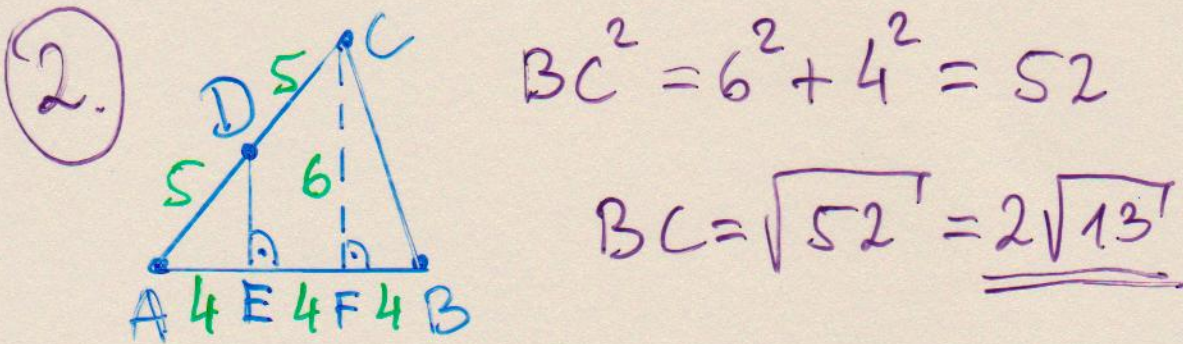 2.
C
5
D
5
6
A 4 E 4 F 4 B
BC² = 6² + 4² = 52
BC = √52 = 2√13